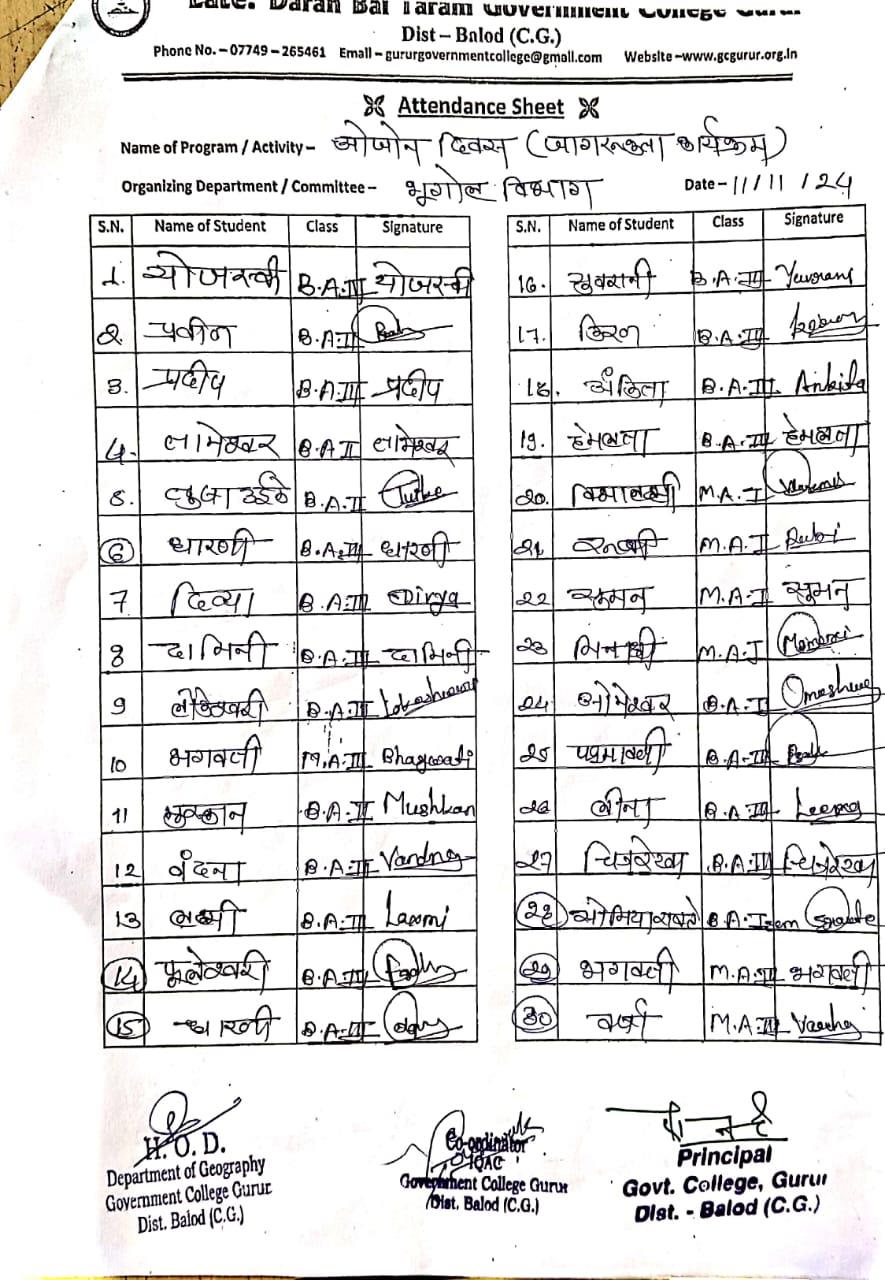 Late. Daran Bai Taram Government College Gurur
Dist – Balod (C.G.)
Phone No. – 07749 - 265461 Email – gururgovernmentcollege@gmail.com Website –www.gcgurur.org.in
Attendance Sheet
Name of Program / Activity – ओजोन दिवस (जागरूकता कार्यक्रम)
Organizing Department / Committee – भूगोल विभाग Date – 11/11/24
S.N. Name of Student Class Signature
1. योजस्वी B.A.III योजस्वी
2. प्रवीन B.A.II
3. प्रदीप B.A.III प्रदीप
4. लामेश्वर B.A II लामेश्वर
5. उईके B.A.II
6 धारणी B.A.III धारणी
7 दिव्या B.A.III Divya
8 दामिनी B.A.III दामिनी
9 लोकेश्वरी B.A.III Lokeshwari
10 भगवती M.A.III Bhagwati
11 मुस्कान B.A.II Mushkan
12 वंदना B.A.II Vandna
13 लक्ष्मी B.A.III Laxmi
14 फूलेश्वरी B.A.III
15 धारणी B.A.II
S.N. Name of Student Class Signature
16. युवरानी B.A.III Yuvrani
17. किरन B.A.III
18. अंकिता B.A.III Ankita
19. हेमलता B.A.III हेमलता
20. M.A.I
21 M.A.I
22 सुमन M.A.I सुमन
23 M.A.I
24 ओमेश्वर B.A.I Omeshwar
25 पद्मावती B.A.III
26 लीना B.A.III Leena
27 चित्ररेखा B.A.III चित्ररेखा
28 B.A.I sem
29 भगवती M.A.III भगवती
30 वर्षा M.A.III Varsha
H.O.D.
Department of Geography
Government College Gurur
Dist. Balod (C.G.)
Co-ordinator
IQAC
Government College Gurur
Dist. Balod (C.G.)
Principal
Govt. College, Gurur
Dist. - Balod (C.G.)